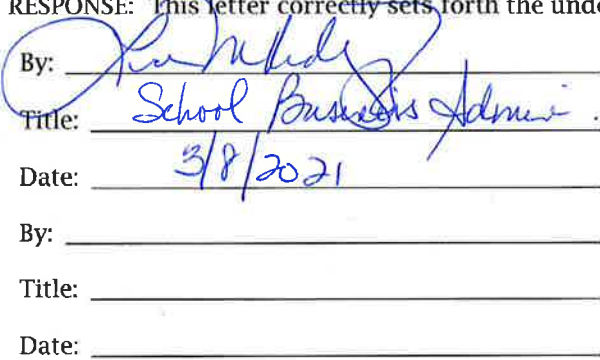 RESPONSE: This letter correctly sets forth the unde
By:
Title: School Business Admin.
Date: 3/8/2021
By:
Title:
Date: